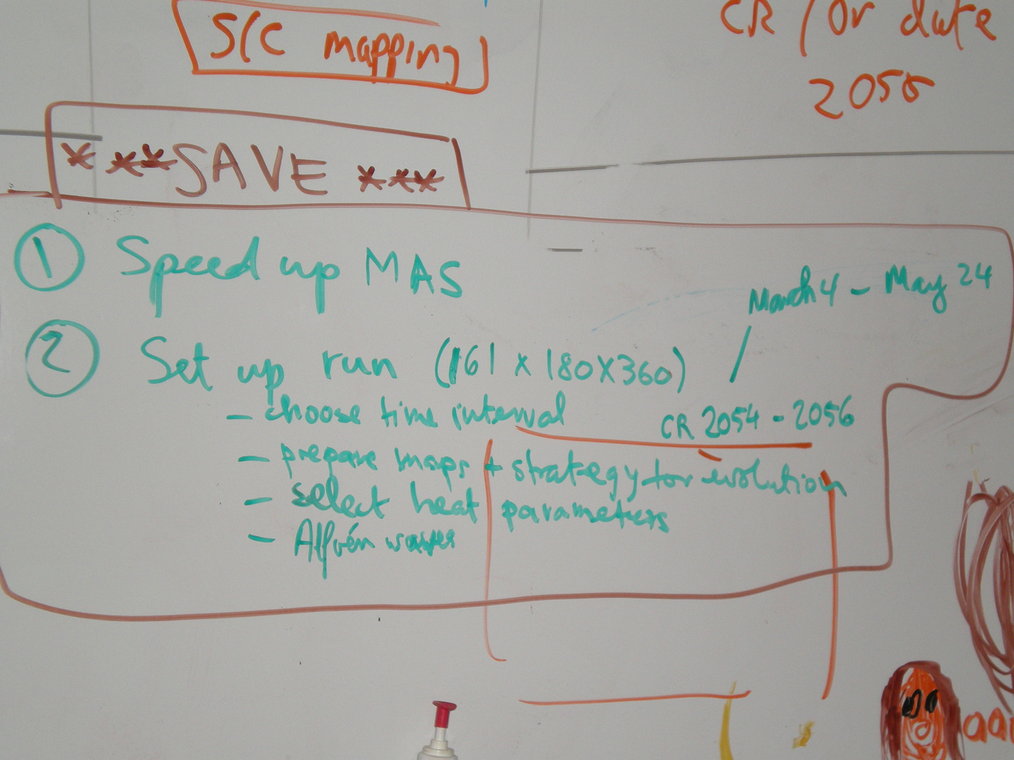 S/C mapping
CR / Or date
2056
* *** SAVE ***
① Speed up MAS
March 4 - May 24
② Set up run (161 x 180 x 360) /
- choose time interval CR 2054 - 2056
- prepare maps + strategy for evolution
- select heat parameters
- Alfvén waves